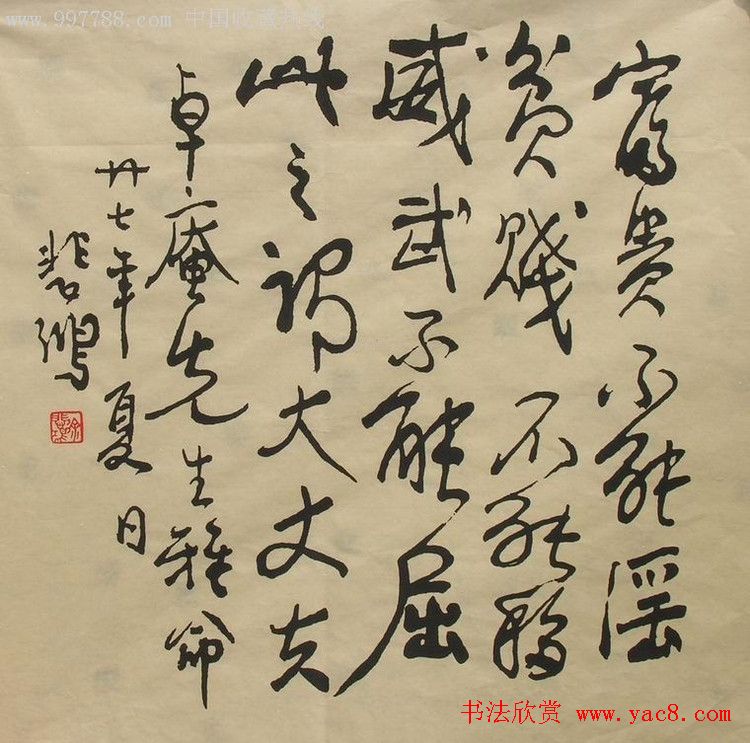 www.997788.com 中国收藏热线
富貴不能淫
貧賤不能移
威武不能屈
此之謂大丈夫
卓庵先生雅命
廿七年夏日
悲鴻
书法欣赏 www.yac8.com